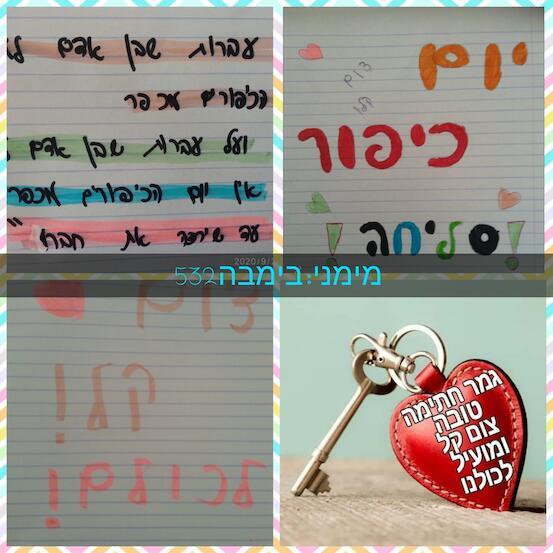 עברות שבן אדם
הכיפורים מכפר
ועל עברות שבן אדם
אין יום הכיפורים מכפר
עד שירצה את חברו"
2020/9/2
יום
צום
קל
כיפור
סליחה!
מימני:בימבה532
צום
קל!
לכולם!
גמר חתימה
טובה
צום קל
ומועיל
לכולנו